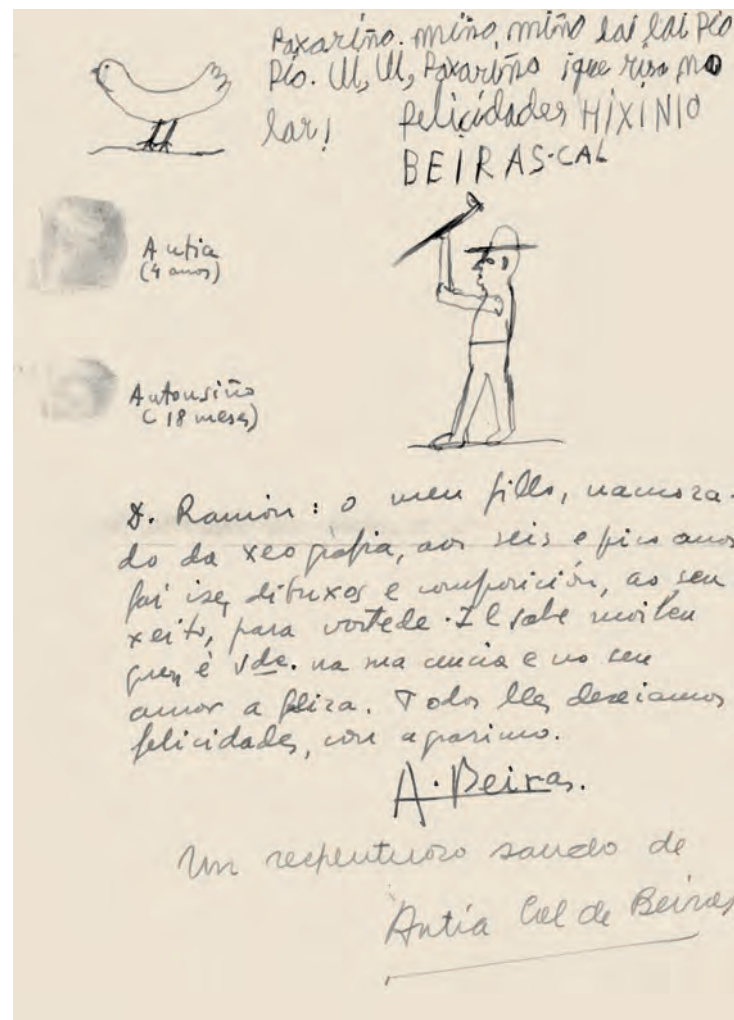 Paxariño. miño, miño lai lai Pío
Pío. Ul, Ul, Paxariño ¡que riso no
lar! felicidades HIXINIO
BEIRAS-CAL
Antia
(4 anos)
Antonsiño
(18 meses)
D. Ramón: o meu fillo, namora-
do da xeografía, aos seis e pico anos
fai ise, dibuxos e composición, ao seu
xeito, para vostede. Il sabe moi ben
quen é Vde. na sua cencia e no seu
amor a Galiza. Todos lle, desexamos
felicidades, con agarimo.
A. Beiras.
Un respetuoso saudo de
Antía Cal de Beiras